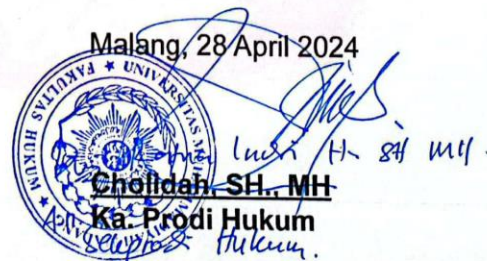 Malang, 28 April 2024
FAKULTAS HUKUM ★ UNIVERSITAS
Indri H. SH MH
Cholidah, SH., MH
Ka. Prodi Hukum
Sekprodi Hukum.